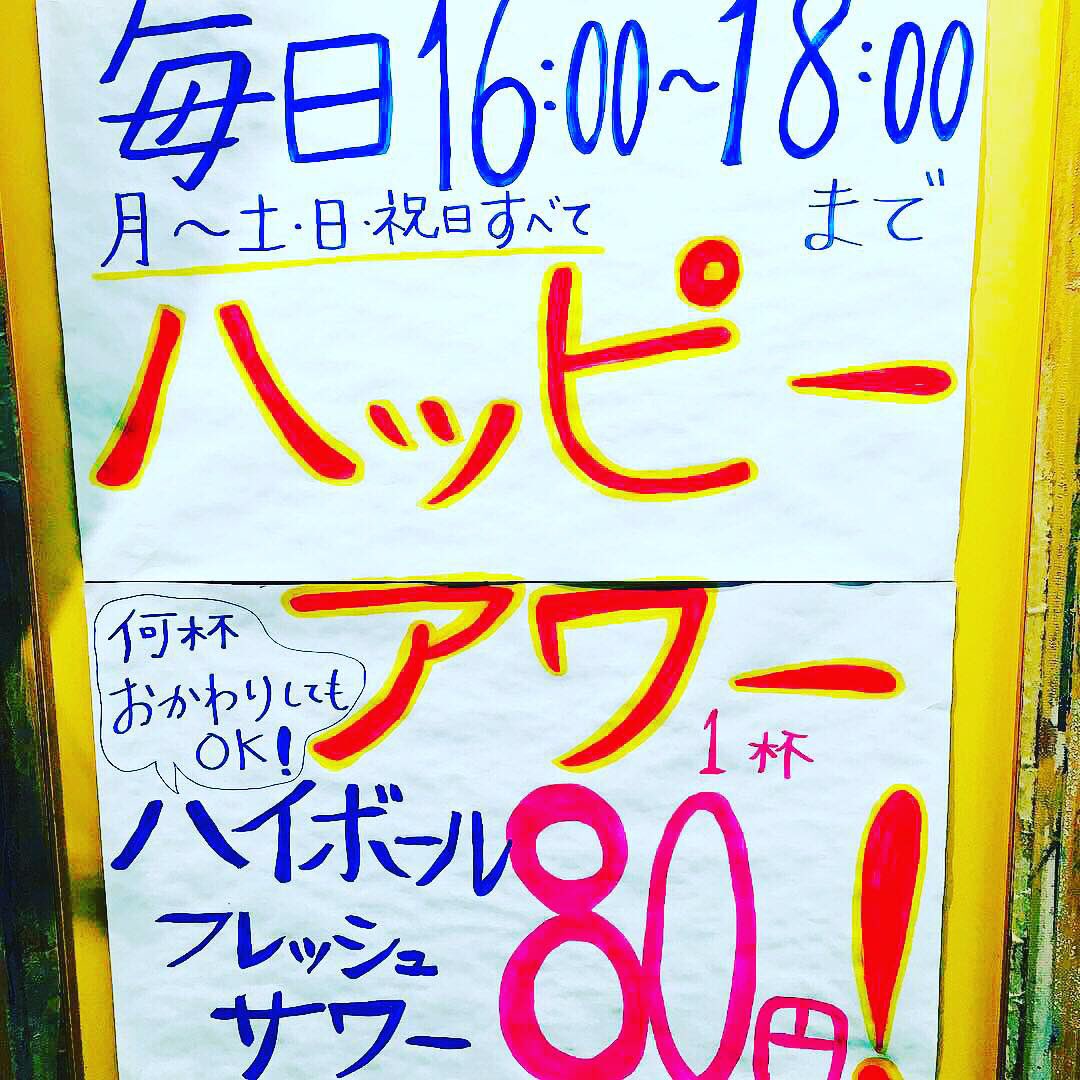 毎日16:00〜18:00
まで
月〜土・日・祝日すべて
ハッピー
アワー
何杯
おかわりしても
OK!
1杯
ハイボール
フレッシュ
サワー
80円!